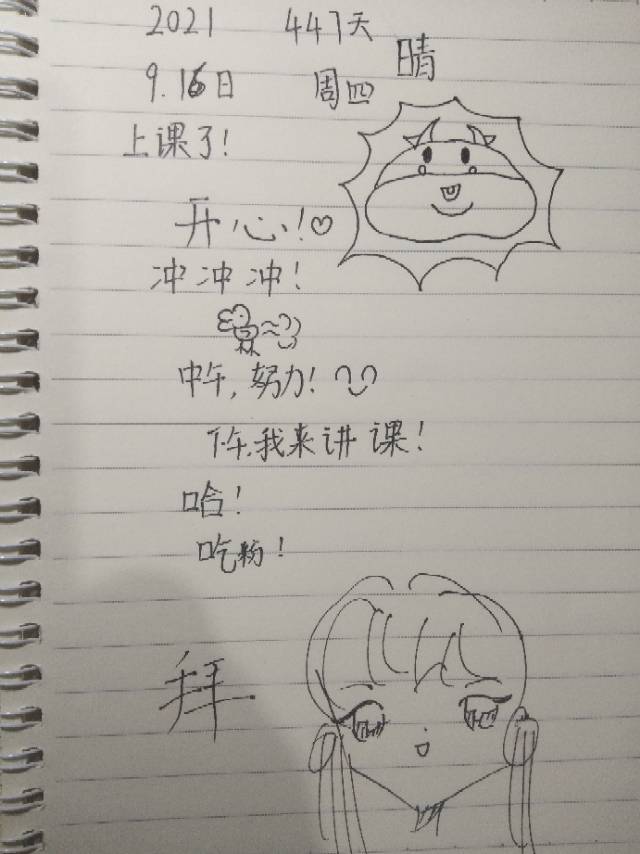 2021 447天 晴
9.16日 周四
上课了！
开心！♡
冲冲冲！
中午，努力！
下午，我来讲课！
哈！
吃粉！
拜